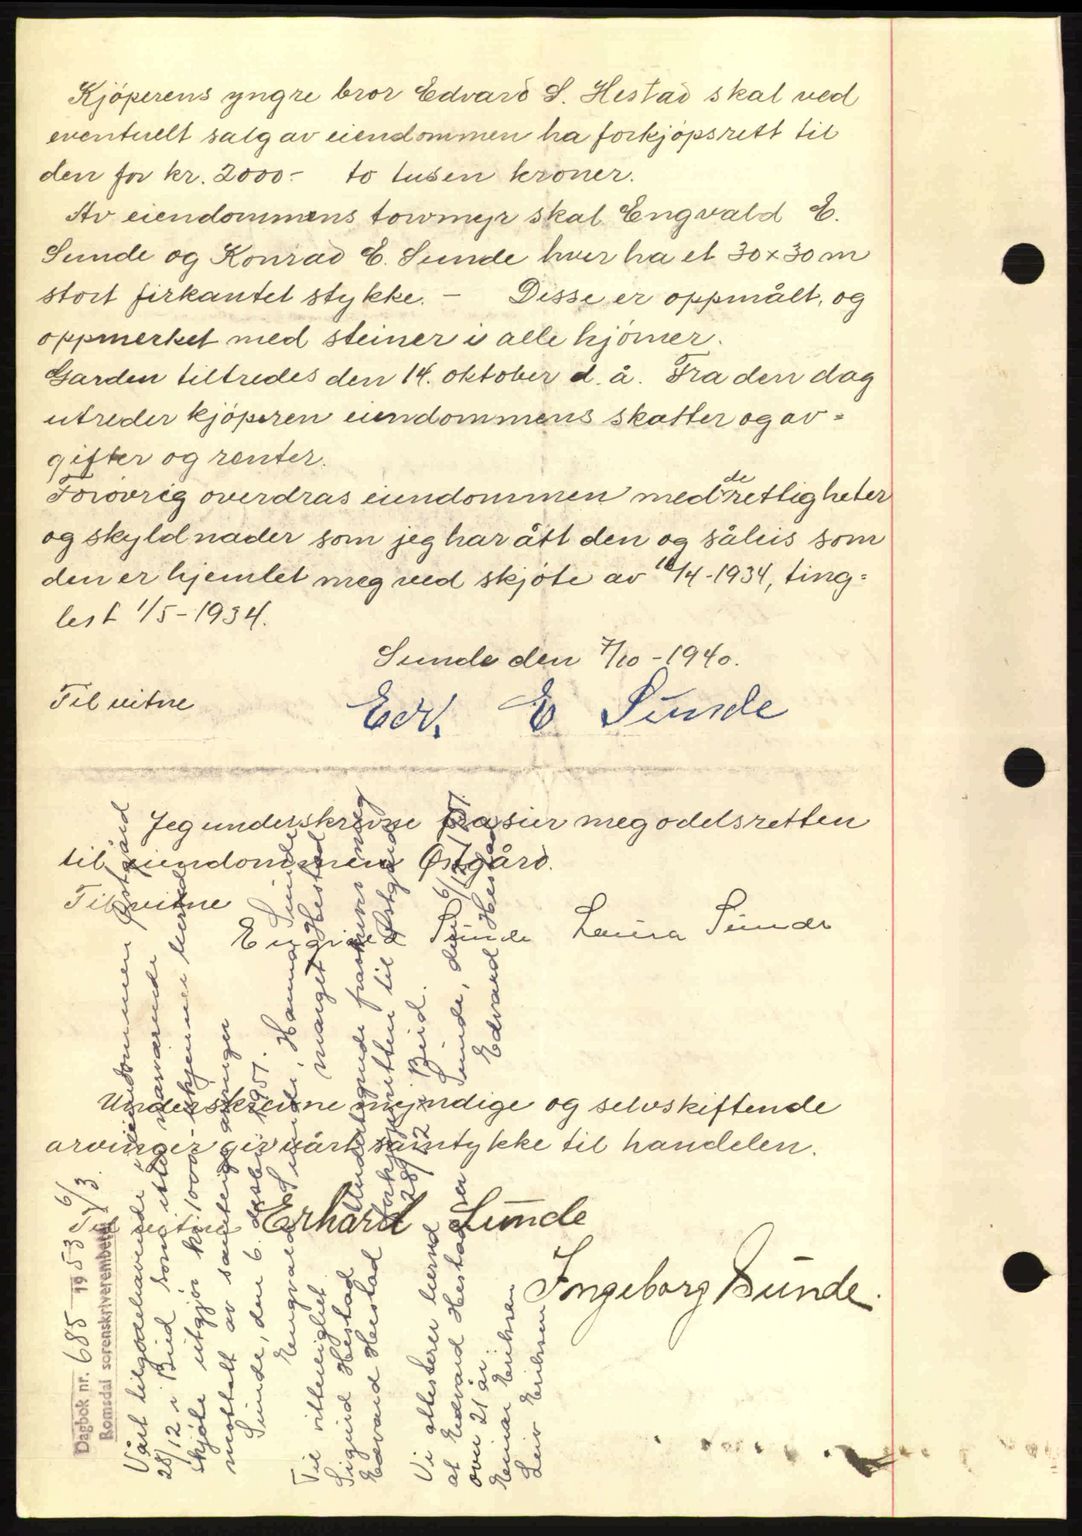 Kjöperens yngre bror Edvard S. Hestad skal ved
eventuelt salg av eiendommen ha forkjöpsrett til
den for kr. 2000.- to tusen kroner.
Av eiendommens torvmyr skal Engvald E.
Sunde og Konrad E. Sunde hver ha et 30 x 30 m
stort firkantet stykke. - Disse er oppmålt, og
oppmerket med steiner i alle hjörner.
Garden tiltredes den 14. oktober d. å. Fra den dag
utreder kjöperen eiendommens skatter og av=
gifter og renter.
Forövrig overdras eiendommen med de rettigheter
og skyldnader som jeg har ått den og såleis som
den er hjemlet meg ved skjöte av 18/4-1934, ting=
lest 1/5-1934.
Sunde den 7/10-1940.
Til vitne
Edv. E Sunde
Jeg underskrevne frasier meg odelsretten
til eiendommen Östgård.
Til vitne
Sunde Laura Sunde
Underskrevne myndige og selvskiftende
arvinger gir vårt samtykke til handelen.
Til vitne Erhard Sunde
Ingeborg Sunde.
Dagbok nr. 685 1953 6/3.
Romsdal sorenskriverembete
Vårt tilgodehavende i eiendommen Östgård
28/12 i Bud som etter nærværende
skjöte utgjör kr. 1000.- erkjennes herved
mottatt av samtlige arvinger
Sunde, den 6. desbr. 1951.
Engvald Sunde, Hanna Sunde
Marget Hestad
Til vitterlighet
Sigurd Hestad
Edvard Hestad
Undertegnede fraskriver meg
forkjöpsretten til Östgård
28/12 i Bud.
Sunde, den 6/12 1951.
Edvard Hestad
Vi attesterer herved
at Edvard Hestad er
over 21 år.
Einar Eriksen
Leiv Eriksen